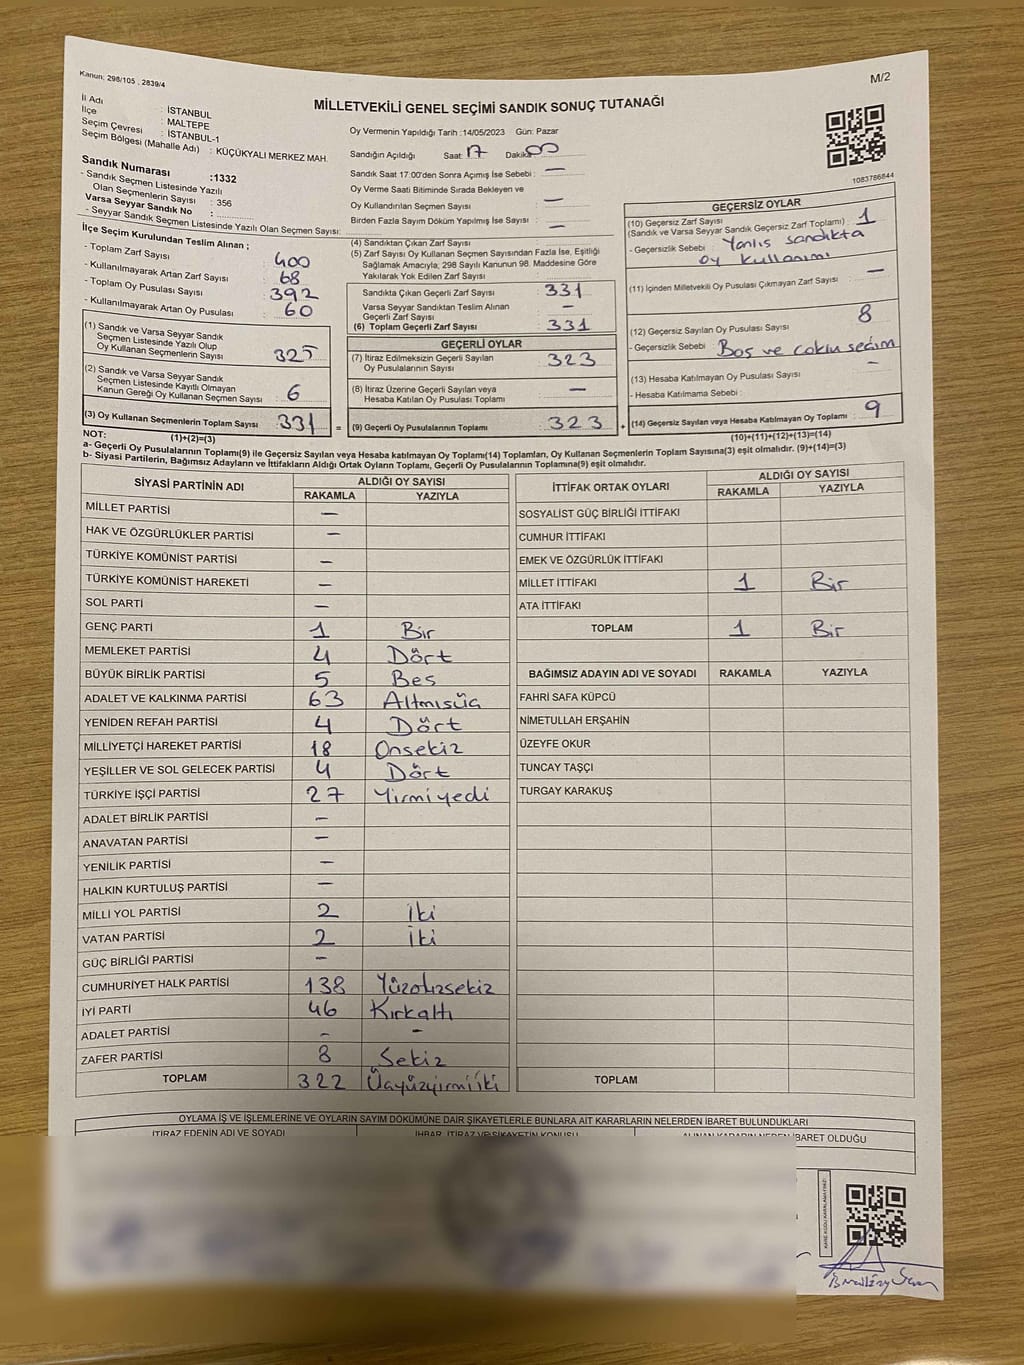 Kanun: 298/105 , 2839/4
M/2
MİLLETVEKİLİ GENEL SEÇİMİ SANDIK SONUÇ TUTANAĞI
İl Adı : İSTANBUL
İlçe : MALTEPE
Seçim Çevresi : İSTANBUL-1
Seçim Bölgesi (Mahalle Adı) : KÜÇÜKYALI MERKEZ MAH.
Sandık Numarası :1332
- Sandık Seçmen Listesinde Yazılı
Olan Seçmenlerin Sayısı : 356
Varsa Seyyar Sandık No :
- Seyyar Sandık Seçmen Listesinde Yazılı Olan Seçmen Sayısı:
Oy Vermenin Yapıldığı Tarih :14/05/2023 Gün: Pazar
Sandığın Açıldığı Saat: 17 Dakika: 00
Sandık Saat 17:00'den Sonra Açımış İse Sebebi : —
Oy Verme Saati Bitiminde Sırada Bekleyen ve
Oy Kullandırılan Seçmen Sayısı : —
Birden Fazla Sayım Döküm Yapılmış İse Sayısı : —
1083786844
İlçe Seçim Kurulundan Teslim Alınan ;
- Toplam Zarf Sayısı : 400
- Kullanılmayarak Artan Zarf Sayısı : 68
- Toplam Oy Pusulası Sayısı : 392
- Kullanılmayarak Artan Oy Pusulası : 60
(1) Sandık ve Varsa Seyyar Sandık
Seçmen Listesinde Yazılı Olup
Oy Kullanan Seçmenlerin Sayısı : 325
(2) Sandık ve Varsa Seyyar Sandık
Seçmen Listesinde Kayıtlı Olmayan
Kanun Gereği Oy Kullanan Seçmen Sayısı : 6
(3) Oy Kullanan Seçmenlerin Toplam Sayısı : 331
(1)+(2)=(3)
(4) Sandıktan Çıkan Zarf Sayısı :
(5) Zarf Sayısı Oy Kullanan Seçmen Sayısından Fazla İse, Eşitliği
Sağlamak Amacıyla, 298 Sayılı Kanunun 98. Maddesine Göre
Yakılarak Yok Edilen Zarf Sayısı :
Sandıkta Çıkan Geçerli Zarf Sayısı : 331
Varsa Seyyar Sandıktan Teslim Alınan
Geçerli Zarf Sayısı : —
(6) Toplam Geçerli Zarf Sayısı : 331
GEÇERLİ OYLAR
(7) İtiraz Edilmeksizin Geçerli Sayılan
Oy Pusulalarının Sayısı : 323
(8) İtiraz Üzerine Geçerli Sayılan veya
Hesaba Katılan Oy Pusulası Toplamı : —
= (9) Geçerli Oy Pusulalarının Toplamı : 323
GEÇERSİZ OYLAR
(10) Geçersiz Zarf Sayısı : 1
(Sandık ve Varsa Seyyar Sandık Geçersiz Zarf Toplamı)
- Geçersizlik Sebebi : Yanlıs sandıkta
oy kullanımı
(11) İçinden Milletvekili Oy Pusulası Çıkmayan Zarf Sayısı : —
(12) Geçersiz Sayılan Oy Pusulası Sayısı : 8
- Geçersizlik Sebebi : Bos ve coklu secim
(13) Hesaba Katılmayan Oy Pusulası Sayısı : —
- Hesaba Katılmama Sebebi :
+ (14) Geçersiz Sayılan veya Hesaba Katılmayan Oy Toplamı : 9
(10)+(11)+(12)+(13)=(14)
NOT:
a- Geçerli Oy Pusulalarının Toplamı(9) ile Geçersiz Sayılan veya Hesaba katılmayan Oy Toplamı(14) Toplamları, Oy Kullanan Seçmenlerin Toplam Sayısına(3) eşit olmalıdır. (9)+(14)=(3)
b- Siyasi Partilerin, Bağımsız Adayların ve İttifakların Aldığı Ortak Oyların Toplamı, Geçerli Oy Pusulalarının Toplamına(9) eşit olmalıdır.
SİYASİ PARTİNİN ADI ALDIĞI OY SAYISI
RAKAMLA YAZIYLA
MİLLET PARTİSİ —
HAK VE ÖZGÜRLÜKLER PARTİSİ —
TÜRKİYE KOMÜNİST PARTİSİ —
TÜRKİYE KOMÜNİST HAREKETİ —
SOL PARTİ —
GENÇ PARTİ 1 Bir
MEMLEKET PARTİSİ 4 Dört
BÜYÜK BİRLİK PARTİSİ 5 Bes
ADALET VE KALKINMA PARTİSİ 63 Altmısüç
YENİDEN REFAH PARTİSİ 4 Dört
MİLLİYETÇİ HAREKET PARTİSİ 18 Onsekiz
YEŞİLLER VE SOL GELECEK PARTİSİ 4 Dört
TÜRKİYE İŞÇİ PARTİSİ 27 Yirmiyedi
ADALET BİRLİK PARTİSİ —
ANAVATAN PARTİSİ —
YENİLİK PARTİSİ —
HALKIN KURTULUŞ PARTİSİ —
MİLLİ YOL PARTİSİ 2 İki
VATAN PARTİSİ 2 İki
GÜÇ BİRLİĞİ PARTİSİ —
CUMHURİYET HALK PARTİSİ 138 Yüzotuzsekiz
İYİ PARTİ 46 Kırkaltı
ADALET PARTİSİ — —
ZAFER PARTİSİ 8 Sekiz
TOPLAM 322 Üçyüzyirmiiki
İTTİFAK ORTAK OYLARI ALDIĞI OY SAYISI
RAKAMLA YAZIYLA
SOSYALİST GÜÇ BİRLİĞİ İTTİFAKI
CUMHUR İTTİFAKI
EMEK VE ÖZGÜRLÜK İTTİFAKI
MİLLET İTTİFAKI 1 Bir
ATA İTTİFAKI
TOPLAM 1 Bir
BAĞIMSIZ ADAYIN ADI VE SOYADI RAKAMLA YAZIYLA
FAHRİ SAFA KÜPCÜ
NİMETULLAH ERŞAHİN
ÜZEYFE OKUR
TUNCAY TAŞÇI
TURGAY KARAKUŞ
TOPLAM
OYLAMA İŞ VE İŞLEMLERİNE VE OYLARIN SAYIM DÖKÜMÜNE DAİR ŞİKAYETLERLE BUNLARA AİT KARARLARIN NELERDEN İBARET BULUNDUKLARI
İTİRAZ EDENİN ADI VE SOYADI İHBAR, İTİRAZ VE ŞİKAYETİN KONUSU ALINAN KARARIN NEDEN İBARET OLDUĞU